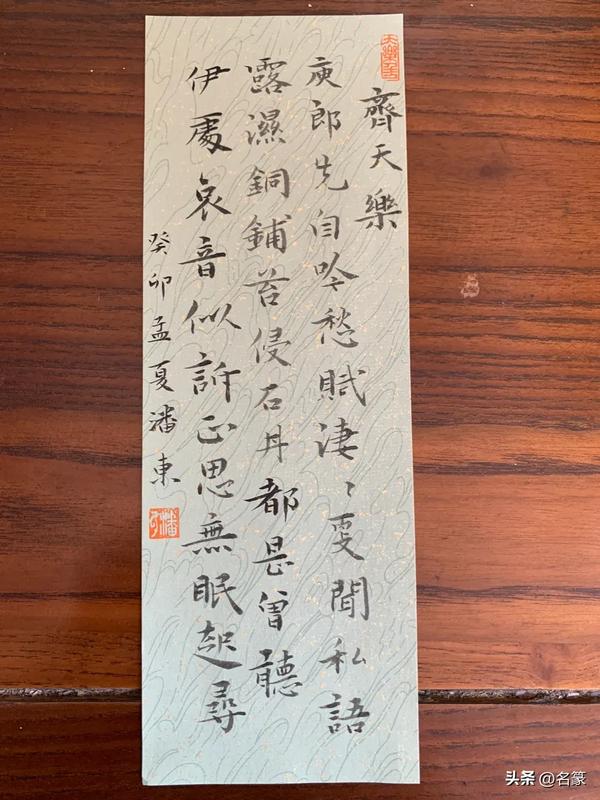 齊天樂
庾郎先自吟愁賦淒〻更聞私語
露濕銅鋪苔侵石井都是曾聽
伊處哀音似訴正思無眠起尋
癸卯孟夏潘東
潘
头条 @名篆